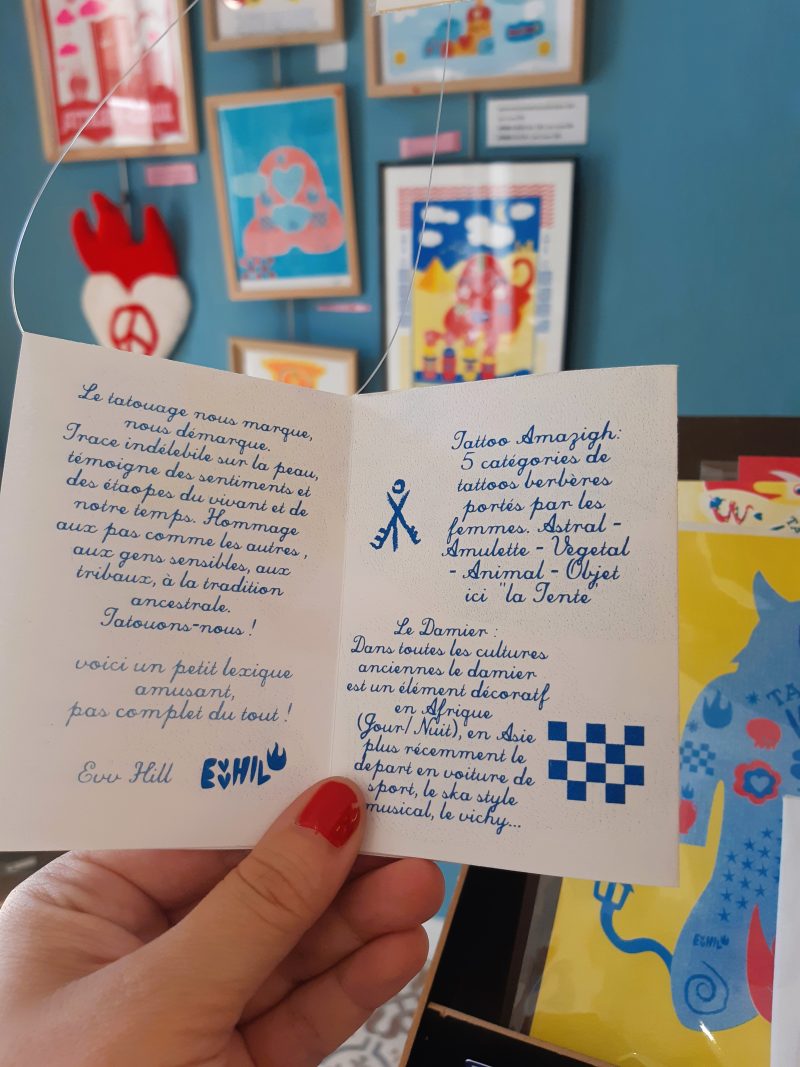 Le tatouage nous marque,
nous démarque.
Trace indélebile sur la peau,
témoigne des sentiments et
des étaopes du vivant et de
notre temps. Hommage
aux pas comme les autres,
aux gens sensibles, aux
tribaux, à la tradition
ancestrale.
Tatouons-nous !
voici un petit lexique
amusant,
pas complet du tout !
Evv Hill
EVVHILL
Tattoo Amazigh:
5 catégories de
tattoos berbères
portés par les
femmes. Astral -
Amulette - Vegetal
- Animal - Objet
ici "la Tente"
Le Damier :
Dans toutes les cultures
anciennes le damier
est un élément décoratif
en Afrique
(Jour/Nuit), en Asie
plus récemment le
depart en voiture de
sport, le ska style
musical, le vichy...
TA